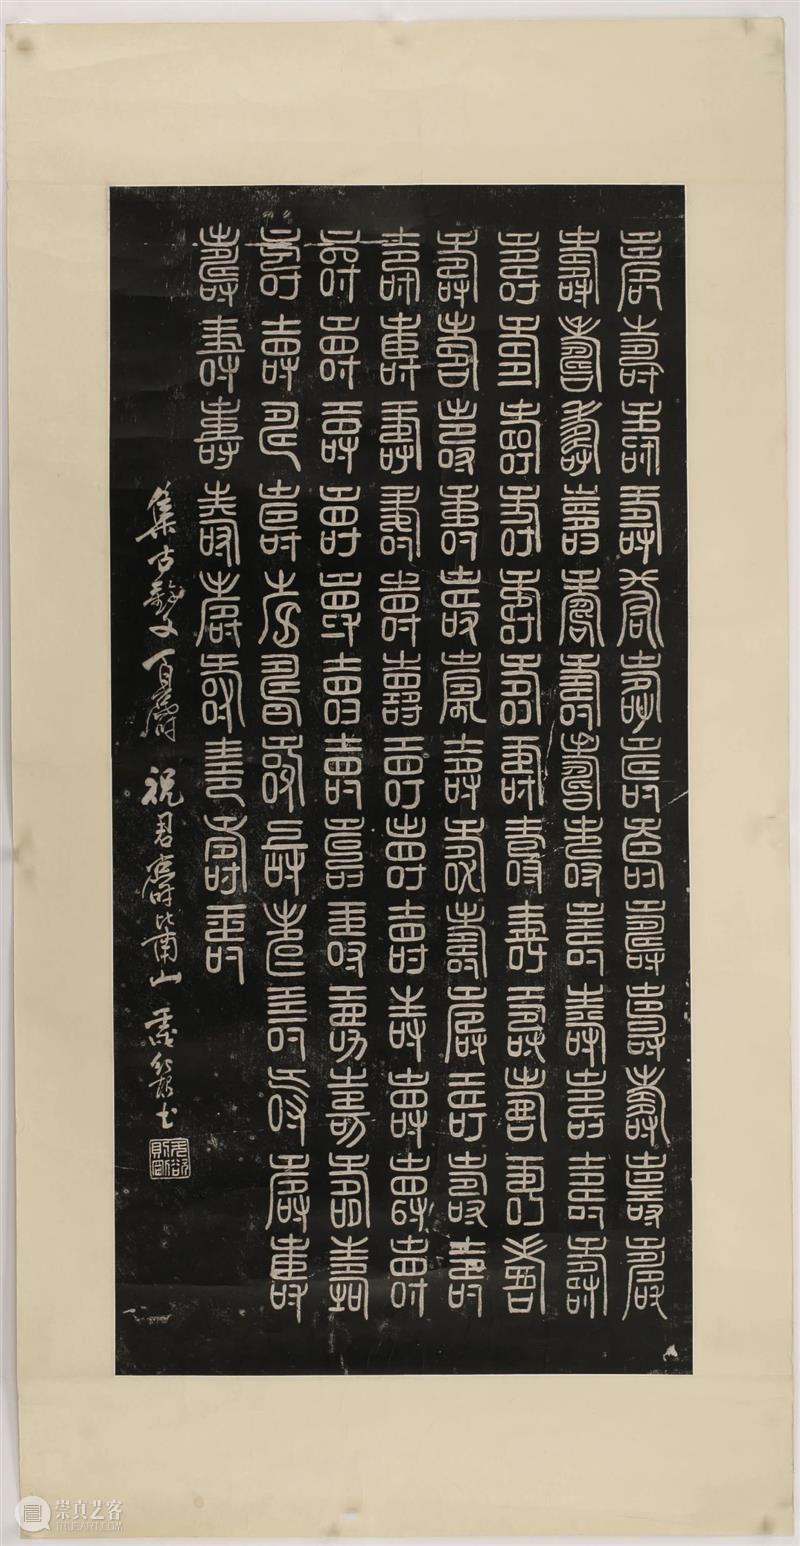 壽壽壽壽壽壽壽壽壽壽壽壽壽
壽壽壽壽壽壽壽壽壽壽壽壽壽
壽壽壽壽壽壽壽壽壽壽壽壽壽
壽壽壽壽壽壽壽壽壽壽壽壽壽
壽壽壽壽壽壽壽壽壽壽壽壽壽
壽壽壽壽壽壽壽壽壽壽壽壽壽
壽壽壽壽壽壽壽壽壽壽壽壽壽
壽壽壽壽壽壽壽壽壽
集古籀文百壽 祝君壽比南山 书
无欲則剛
崇真艺客
TRUEART.COM